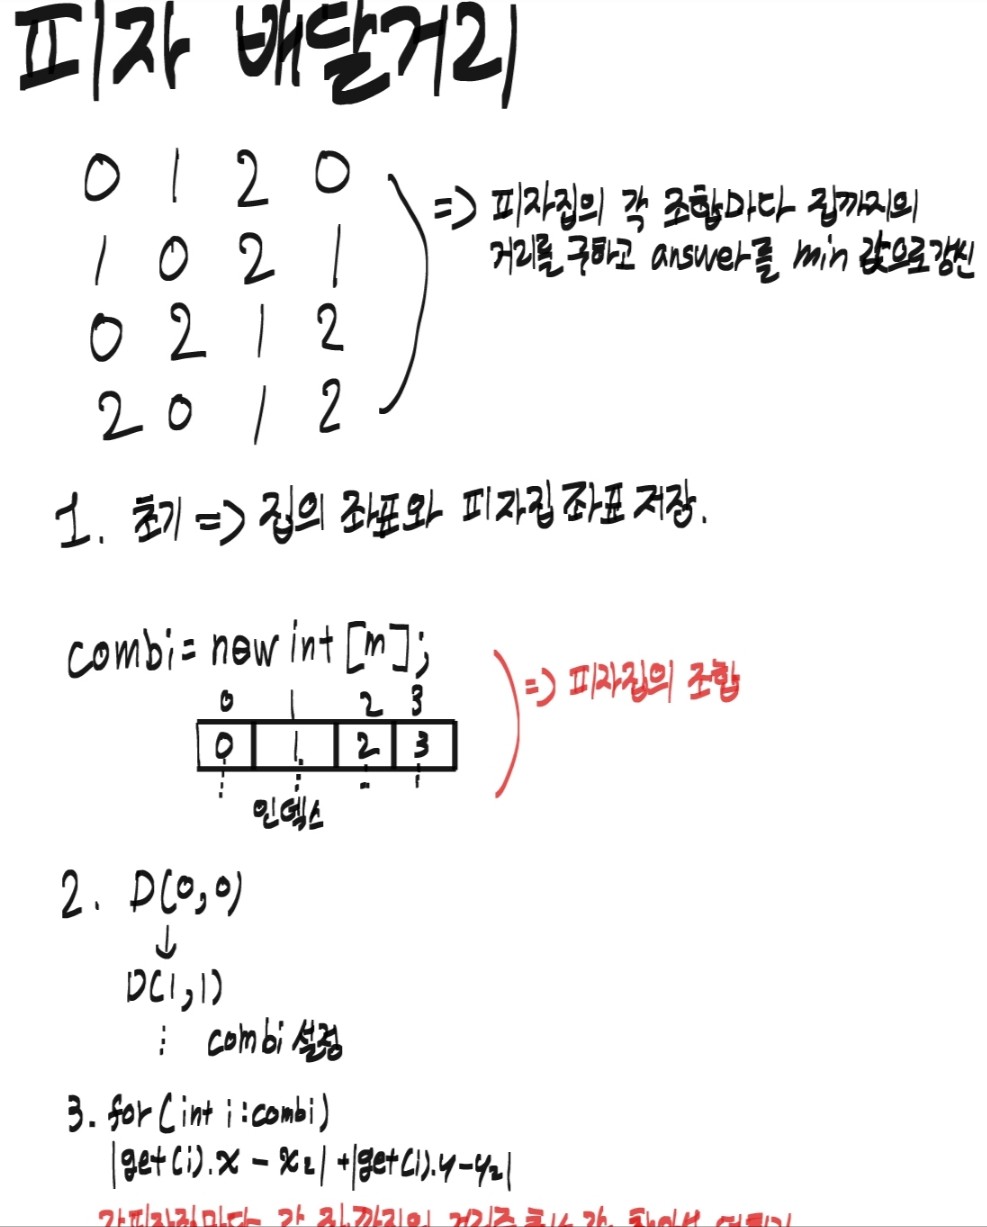 피자 배달거리
0 1 2 0
1 0 2 1
0 2 1 2
2 0 1 2
=> 피자집의 각 조합마다 집까지의
거리를 구하고 answer를 min 값으로 갱신
1. 초기 => 집의 좌표와 피자집 좌표 저장.
combi = new int [m];
0 1 2 3
0 1 2 3
인덱스
=> 피자집의 조합
2. D(0,0)
↓
D(1,1)
⋮ combi 설정
3. for (int i : combi)
|get(i).x - x2| + |get(i).y - y2|